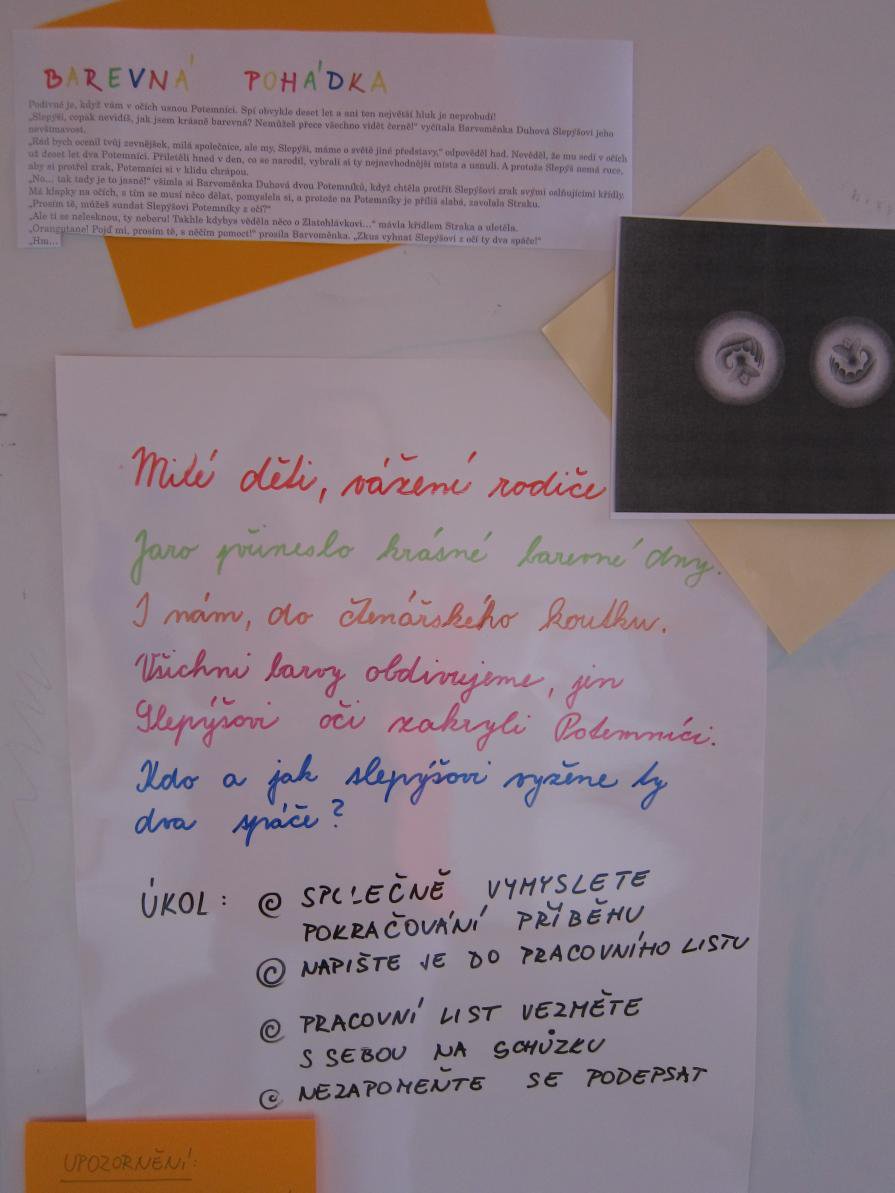 BAREVNÁ POHÁDKA
Podivné je, když vám v očích usnou Potemníci. Spí obvykle deset let a ani ten největší hluk je neprobudí!
„Slepýši, copak nevidíš, jak jsem krásně barevná? Nemůžeš přece všechno vidět černě!“ vyčítala Barvoměnka Duhová Slepýšovi jeho
nevšímavost.
„Rád bych ocenil tvůj zevnějšek, milá společnice, ale my, Slepýši, máme o světě jiné představy,“ odpověděl had. Nevěděl, že mu sedí v očích
už deset let dva Potemníci. Přiletěli hned v den, co se narodil, vybrali si ty nejnevhodnější místa a usnuli. A protože Slepýš nemá ruce,
aby si protřel zrak, Potemníci si v klidu chrápou.
„No... tak tady je to jasné!“ všimla si Barvoměnka Duhová dvou Potemníků, když chtěla protřít Slepýšovi zrak svými oslňujícími křídly.
Má klapky na očích, s tím se musí něco dělat, pomyslela si, a protože na Potemníky je příliš slabá, zavolala Straku.
„Prosím tě, můžeš sundat Slepýšovi Potemníky z očí?“
„Ale ti se nelesknou, ty neberu! Takhle kdybys věděla něco o Zlatohlávkovi...“ mávla křídlem Straka a uletěla.
„Orangutane! Pojď mi, prosím tě, s něčím pomoct!“ prosila Barvoměnka. „Zkus vyhnat Slepýšovi z očí ty dva spáče!“
„Hm...
Milé děti, vážení rodiče
Jaro přineslo krásné barevné dny.
I nám, do čtenářského koutku.
Všichni barvy obdivujeme, jen
Slepýšovi oči zakryli Potemníci.
Kdo a jak slepýšovi vyžene ty
dva spáče?
ÚKOL: SPOLEČNĚ VYMYSLETE
POKRAČOVÁNÍ PŘÍBĚHU
NAPIŠTE JE DO PRACOVNÍHO LISTU
PRACOVNÍ LIST VEZMĚTE
S SEBOU NA SCHŮZKU
NEZAPOMEŇTE SE PODEPSAT
UPOZORNĚNÍ: